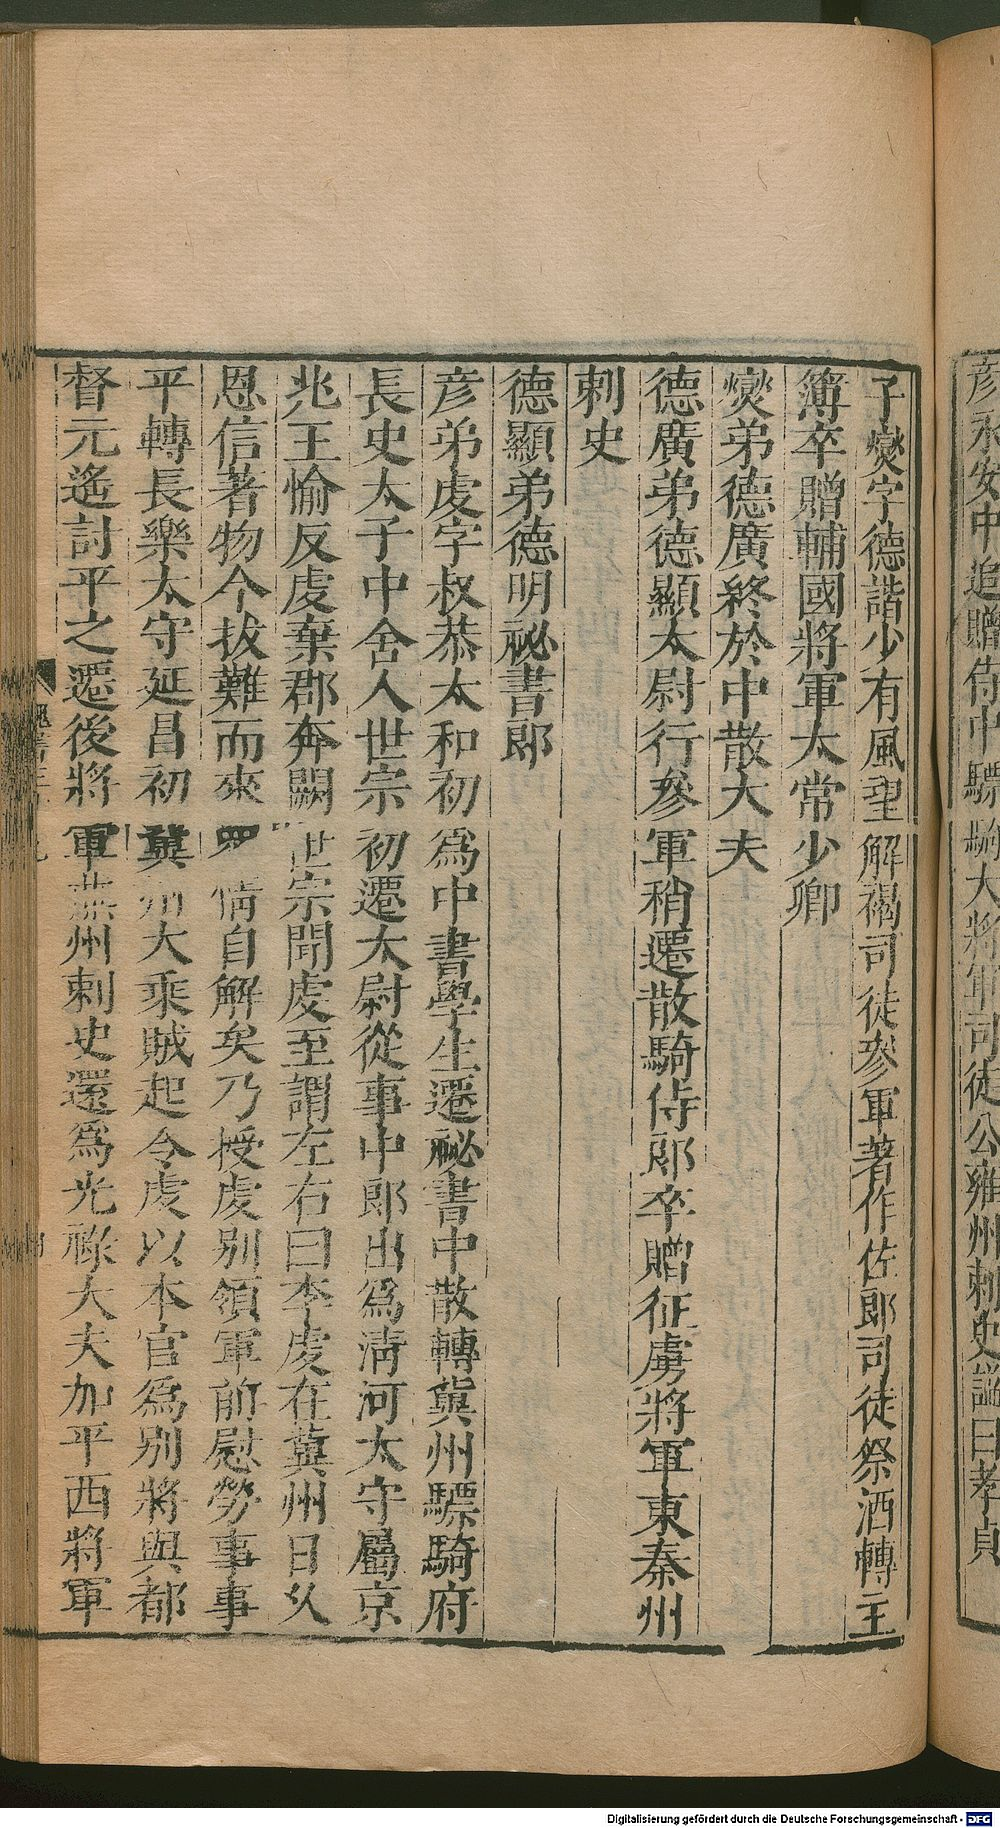 彦永安中追贈侍中驃騎大將軍司徒公雍州刺史諡曰孝貞
子燮字德諧少有風望解褐司徒參軍著作佐郎司徒祭酒轉主
簿卒贈輔國將軍太常少卿
燮弟德廣終於中散大夫
德廣弟德顯太尉行參軍稍遷散騎侍郎卒贈征虜將軍東秦州
刺史
德顯弟德明祕書郎
彥弟虔字叔恭太和初為中書學生遷祕書中散轉冀州驃騎府
長史太子中舍人世宗初遷太尉從事中郎出為清河太守屬京
兆王愉反虔棄郡奔闕世宗聞虔至謂左右曰李虔在冀州日久
恩信著物今拔難而來眾情自解矣乃授虔別領軍前慰勞事事
平轉長樂太守延昌初冀州大乘賊起令虔以本官為別將與都
督元遙討平之遷後將軍燕州刺史還為光祿大夫加平西將軍
Digitalisierung gefördert durch die Deutsche Forschungsgemeinschaft - DFG